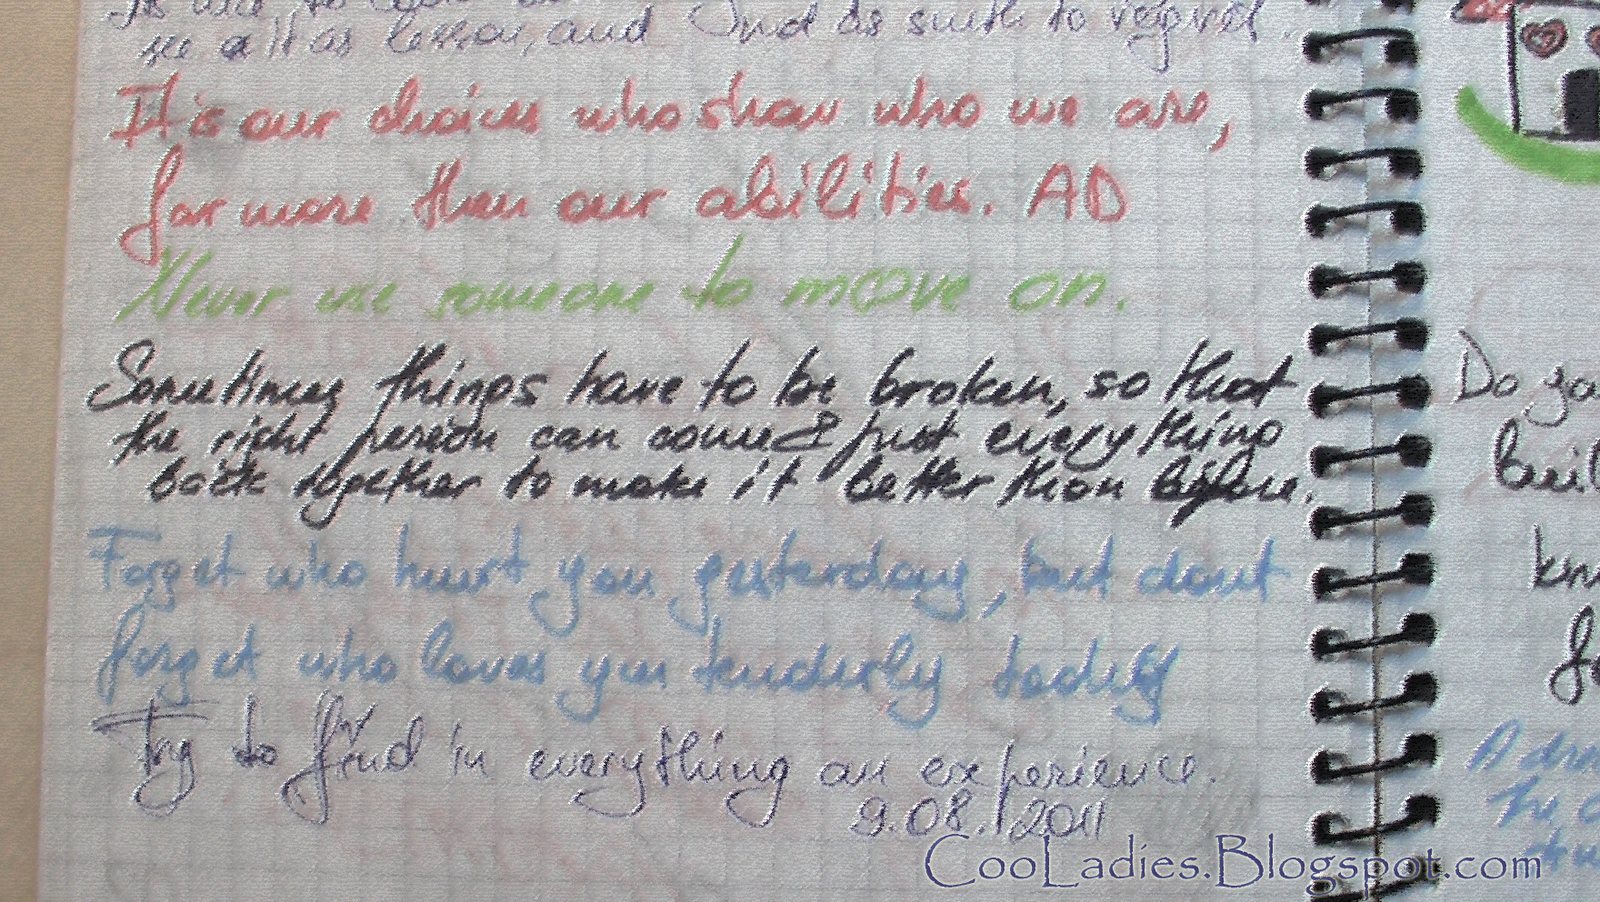 as lesson, and
It is our choices who show who we are,
far more than our abilities. AD
Never use someone to move on.
Sometimes things have to be broken, so that
the right person can come & put everything
back together to make it better than before.
Forget who hurt you yesterday, but dont
forget who loves you tenderly today
Try to find in everything an experience.
9.08.2011
CooLadies.Blogspot.com
Do